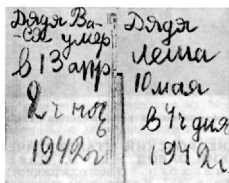 Дядя Ва-
-ся умер
в 13 апр
2 ч ноч
1942 г
Дядя
Леша
10 мая
в 4 ч дня
1942 г